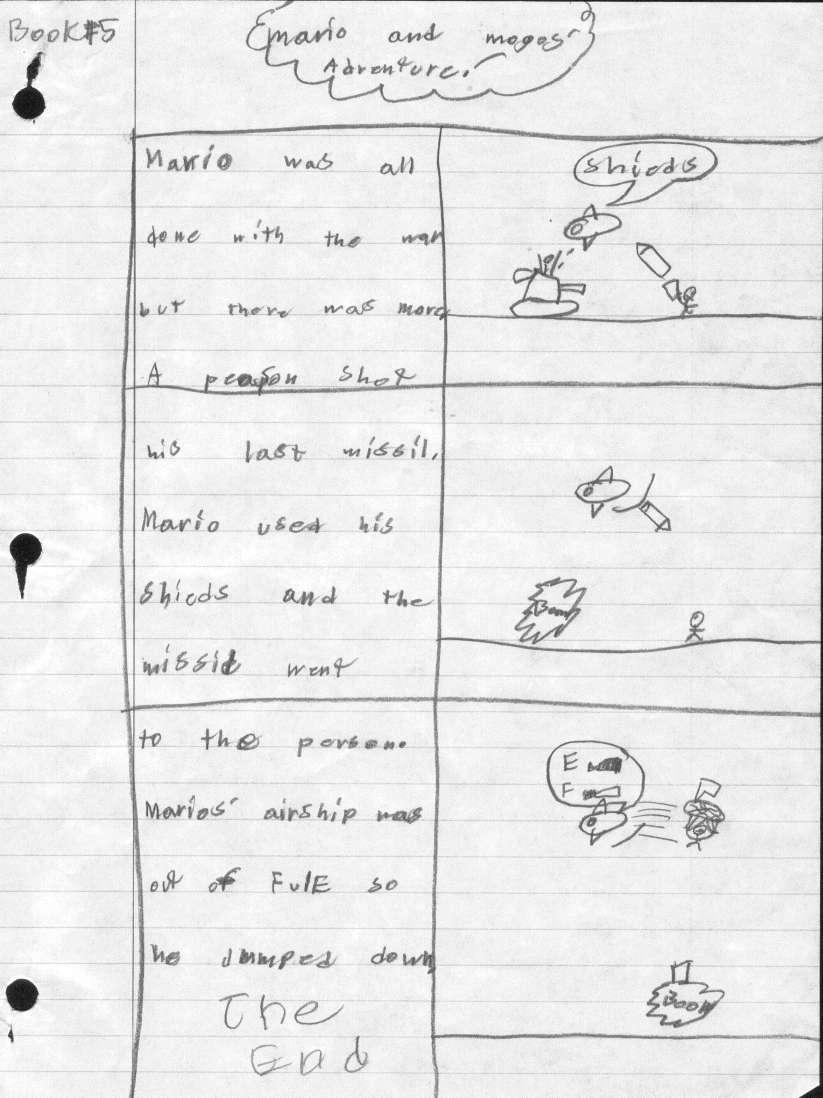 Book#5
Mario and mogos'
Adventure!
Mario was all
done with the war
but there was more
A person shot
shieds
his last missil.
Mario used his
shieds and the
missil went
Boom
to the person.
Marios' airship was
out of FulE so
he Jumped down
The
End
E
F
Boom